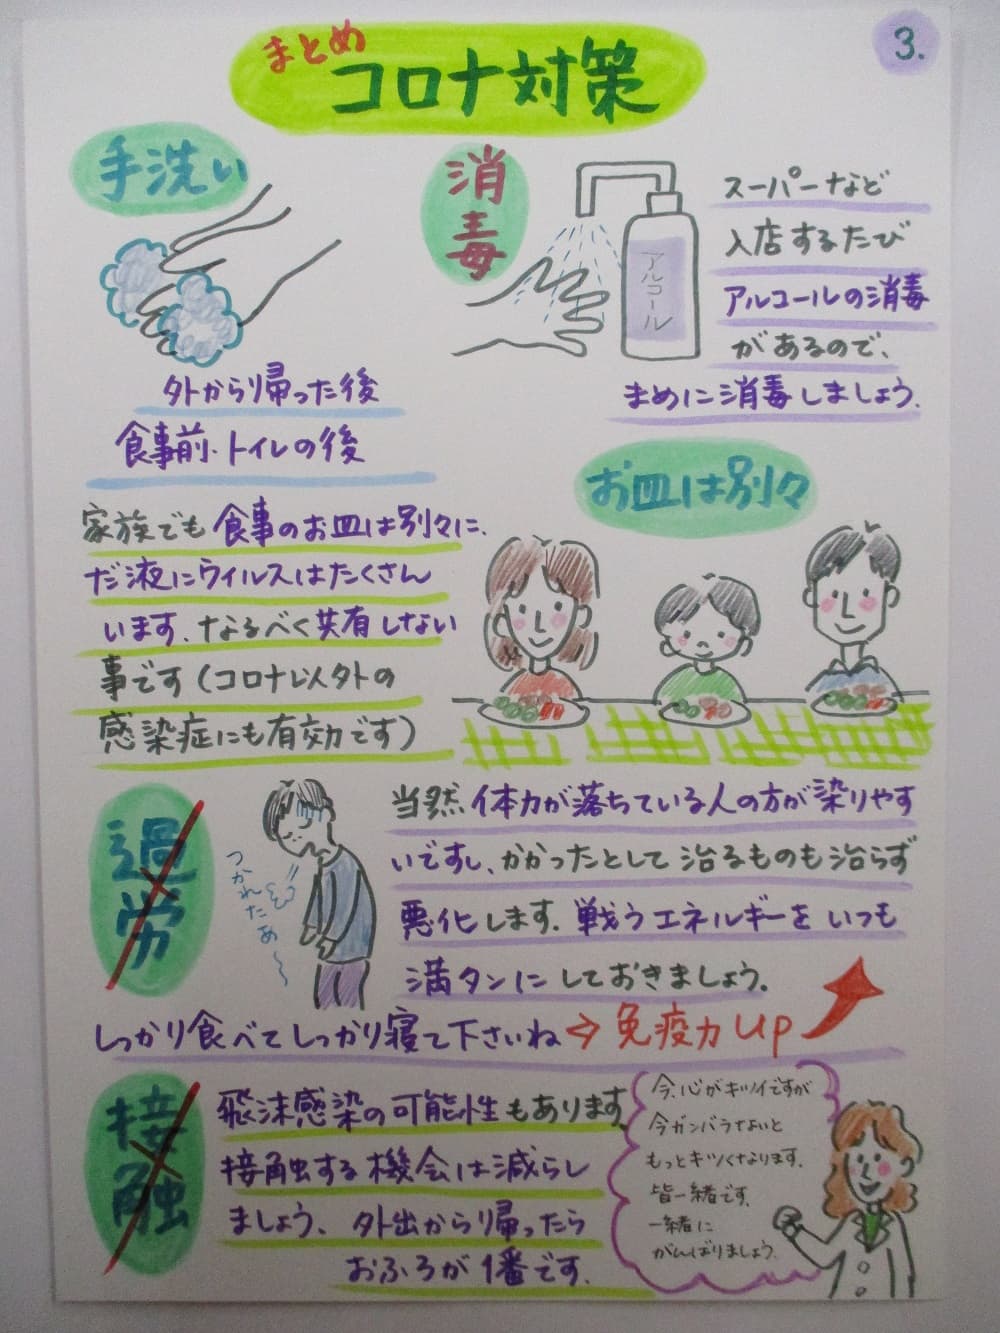 3.
まとめ
コロナ対策
手洗い
外から帰った後
食事前・トイレの後
消毒
アルコール
スーパーなど
入店するたび
アルコールの消毒
があるので、
まめに消毒しましょう。
お皿は別々
家族でも食事のお皿は別々に、
だ液にウイルスはたくさん
います、なるべく共有しない
事です(コロナ以外の
感染症にも有効です)
過労
つかれたあ〜
当然、体力が落ちている人の方が染りやす
いですし、かかったとして治るものも治らず
悪化します。戦うエネルギーをいつも
満タンにしておきましょう。
しっかり食べてしっかり寝て下さいね⇨免疫力up
接触
飛沫感染の可能性もあります
接触する機会は減らし
ましょう、外出から帰ったら
おふろが1番です。
今、心がキツイですが
今ガンバラないと
もっとキツくなります。
皆一緒です。
一緒に
がんばりましょう。